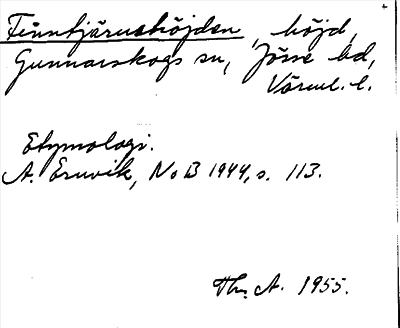 Finntjärnshöjden, höjd,
Gunnarskogs sn, Jösse hd,
Värml. l.
Etymologi.
A. Ernvik, NoB 1944, s. 113.
Th. A. 1955.